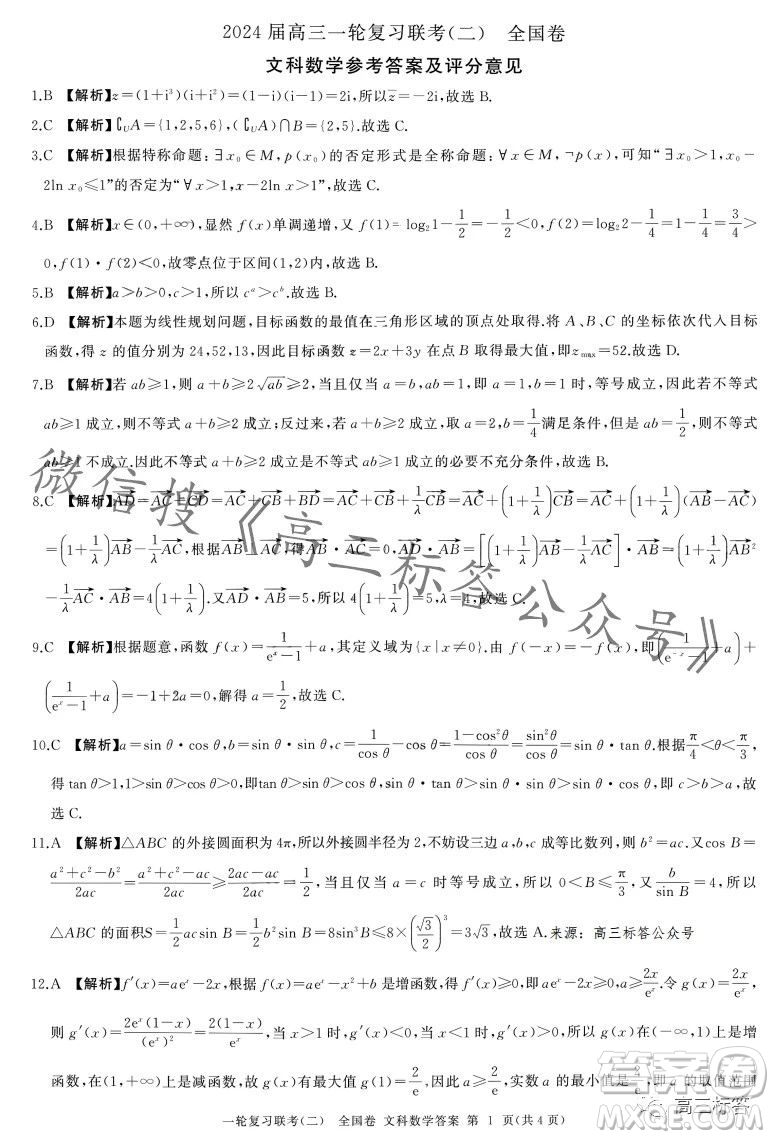 2024 届高三一轮复习联考(二) 全国卷
文科数学参考答案及评分意见
1.B 【解析】z=(1+i³)(i+i²)=(1-i)(i-1)=2i,所以z̄=-2i,故选 B.
2.C 【解析】∁UA={1,2,5,6},(∁UA)∩B={2,5}.故选 C.
3.C 【解析】根据特称命题:∃x₀∈M,p(x₀)的否定形式是全称命题:∀x∈M,¬p(x),可知“∃x₀>1,x₀-
2ln x₀≤1”的否定为“∀x>1,x-2ln x>1”,故选 C.
4.B 【解析】x∈(0,+∞),显然 f(x)单调递增,又 f(1)=log₂1-1/2=-1/2<0,f(2)=log₂2-1/4=1-1/4=3/4>
0,f(1)·f(2)<0,故零点位于区间(1,2)内.故选 B.
5.B 【解析】a>b>0,c>1,所以 cᵃ>cᵇ.故选 B.
6.D 【解析】本题为线性规划问题,目标函数的最值在三角形区域的顶点处取得.将 A、B、C 的坐标依次代入目标
函数,得 z 的值分别为 24,52,13,因此目标函数 z=2x+3y 在点 B 取得最大值,即zmax=52.故选 D.
7.B 【解析】若 ab≥1,则 a+b≥2√ab≥2,当且仅当 a=b=1,即 a=1,b=1 时,等号成立,即若不等式
ab≥1 成立,则不等式 a+b≥2 成立;反过来,若 a+b≥2 成立,取 a=2,b=1/4满足条件,但是 ab=1/2,则不等式
ab≥1 不成立.因此不等式 a+b≥2 成立是不等式 ab≥1 成立的必要不充分条件,故选 B.
8.C 【解析】AD→=AC→+CD→=AC→+CB→+BD→=AC→+CB→+1/λCB→=AC→+(1+1/λ)CB→=AC→+(1+1/λ)(AB→-AC→)
=(1+1/λ)AB→-1/λAC→,根据AB⊥AC,得AB→·AC→=0,AD→·AB→=[(1+1/λ)AB→-1/λAC→]·AB→=(1+1/λ)AB→²
-1/λAC→·AB→=4(1+1/λ).又AD→·AB→=5,所以4(1+1/λ)=5,λ=4,故选 C.
9.C 【解析】根据题意,函数 f(x)=1/(eˣ-1)+a,其定义域为{x|x≠0}.由 f(-x)=-f(x),即(1/(e⁻ˣ-1)+a)+
(1/(eˣ-1)+a)=-1+2a=0,解得 a=1/2,故选 C.
10.C 【解析】a=sin θ·cos θ,b=sin θ,c=1/cos θ-cos θ=(1-cos²θ)/cos θ=sin²θ/cos θ=sin θ·tan θ.根据π/4<θ<π/3,
得 tan θ>1,1>sin θ>cos θ>0,即tan θ>1>cos θ>0,sin θ·tan θ>sin θ>sin θ·cos θ,即 c>b>a,故
选 C.
11.A 【解析】△ABC 的外接圆面积为 4π,所以外接圆半径为 2,不妨设三边 a,b,c 成等比数列,则 b²=ac.又cos B=
(a²+c²-b²)/2ac=(a²+c²-ac)/2ac≥(2ac-ac)/2ac=1/2,当且仅当 a=c 时等号成立,所以 0<B≤π/3,又 b/sin B=4,所以
△ABC 的面积S=1/2acsin B=1/2b²sin B=8sin³B≤8×(√3/2)³=3√3,故选 A.来源: 高三标答公众号
12.A 【解析】f′(x)=aeˣ-2x,根据 f(x)=aeˣ-x² 是增函数,得 f′(x)≥0,即 aeˣ-2x≥0,a≥2x/eˣ.令 g(x)=2x/eˣ,
则 g′(x)=2eˣ(1-x)/(eˣ)²=2(1-x)/eˣ,当 x>1 时,g′(x)<0,当 x<1 时,g′(x)>0,所以 g(x)在(-∞,1)上是增
函数,在(1,+∞)上是减函数,故 g(x)有最大值 g(1)=2/e,所以 a≥2/e,实数 a 的最小值是2/e,故 a 的取值范围
微信搜《高三标答公众号》
答案圈
高三标答
一轮复习联考(二) 全国卷 文科数学答案 第 1 页(共 4 页)